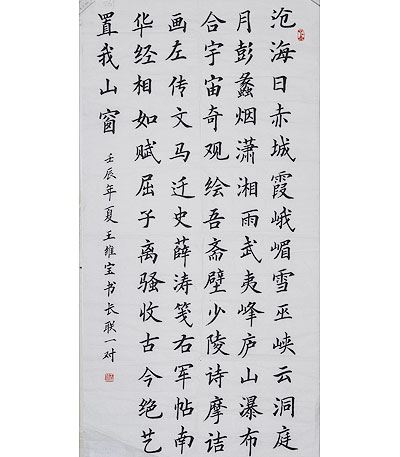 沧海日赤城霞峨嵋雪巫峡云洞庭
月彭蠡烟潇湘雨武夷峰庐山瀑布
合宇宙奇观绘吾斋壁少陵诗摩诘
画左传文马迁史薛涛笺右军帖南
华经相如赋屈子离骚收古今绝艺
置我山窗
壬辰年夏王维宝书长联一对